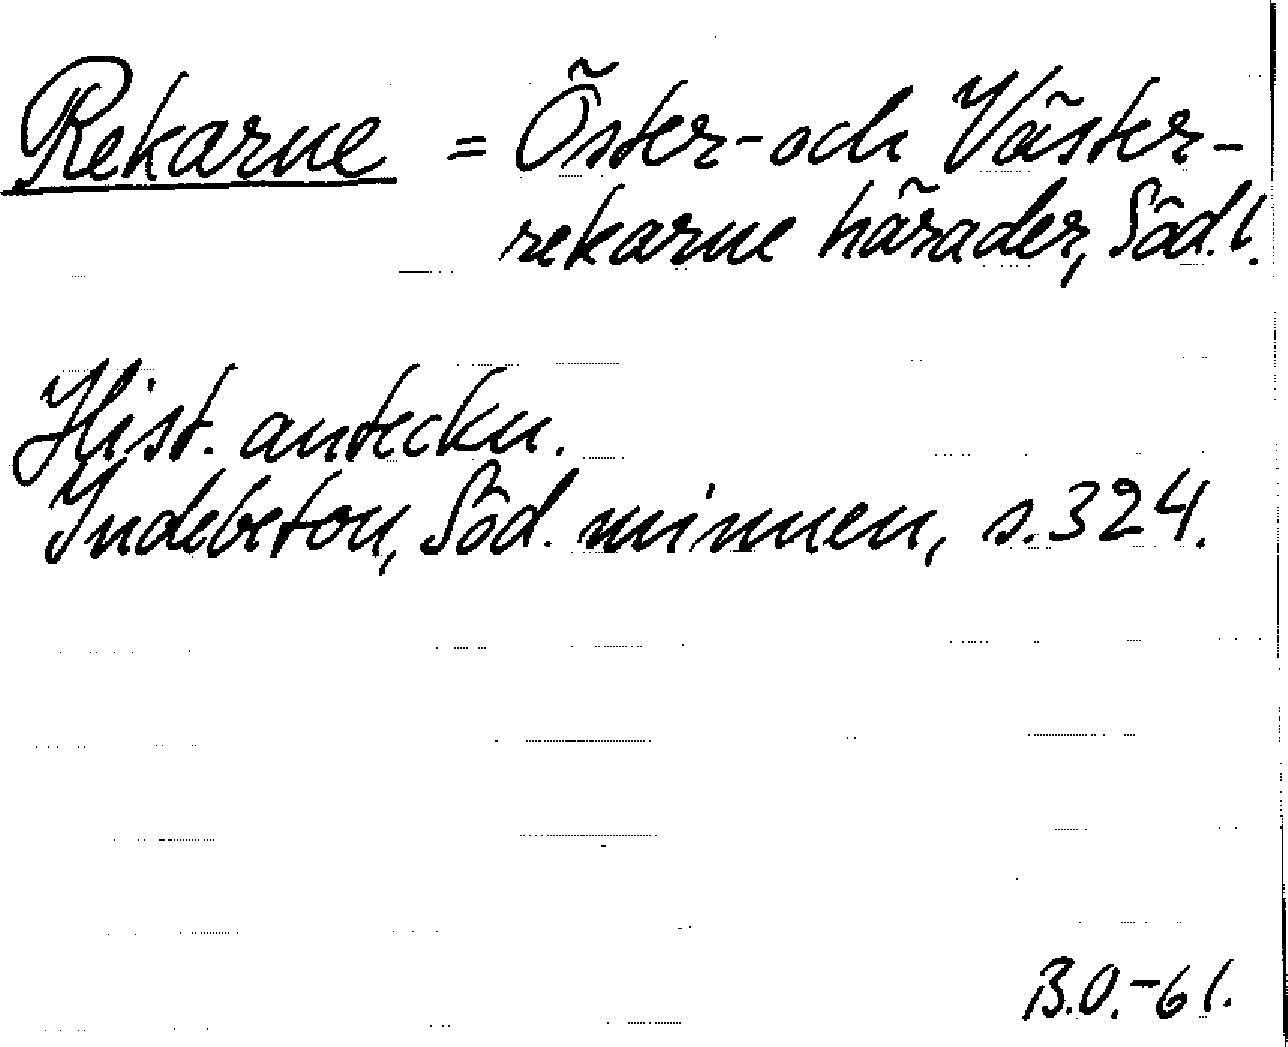 Rekarne = Öster- och Väster-
rekarne härader, Söd.l.
Hist. anteckn.
Indebetou, Söd. minnen, s. 324.
B.O.-61.